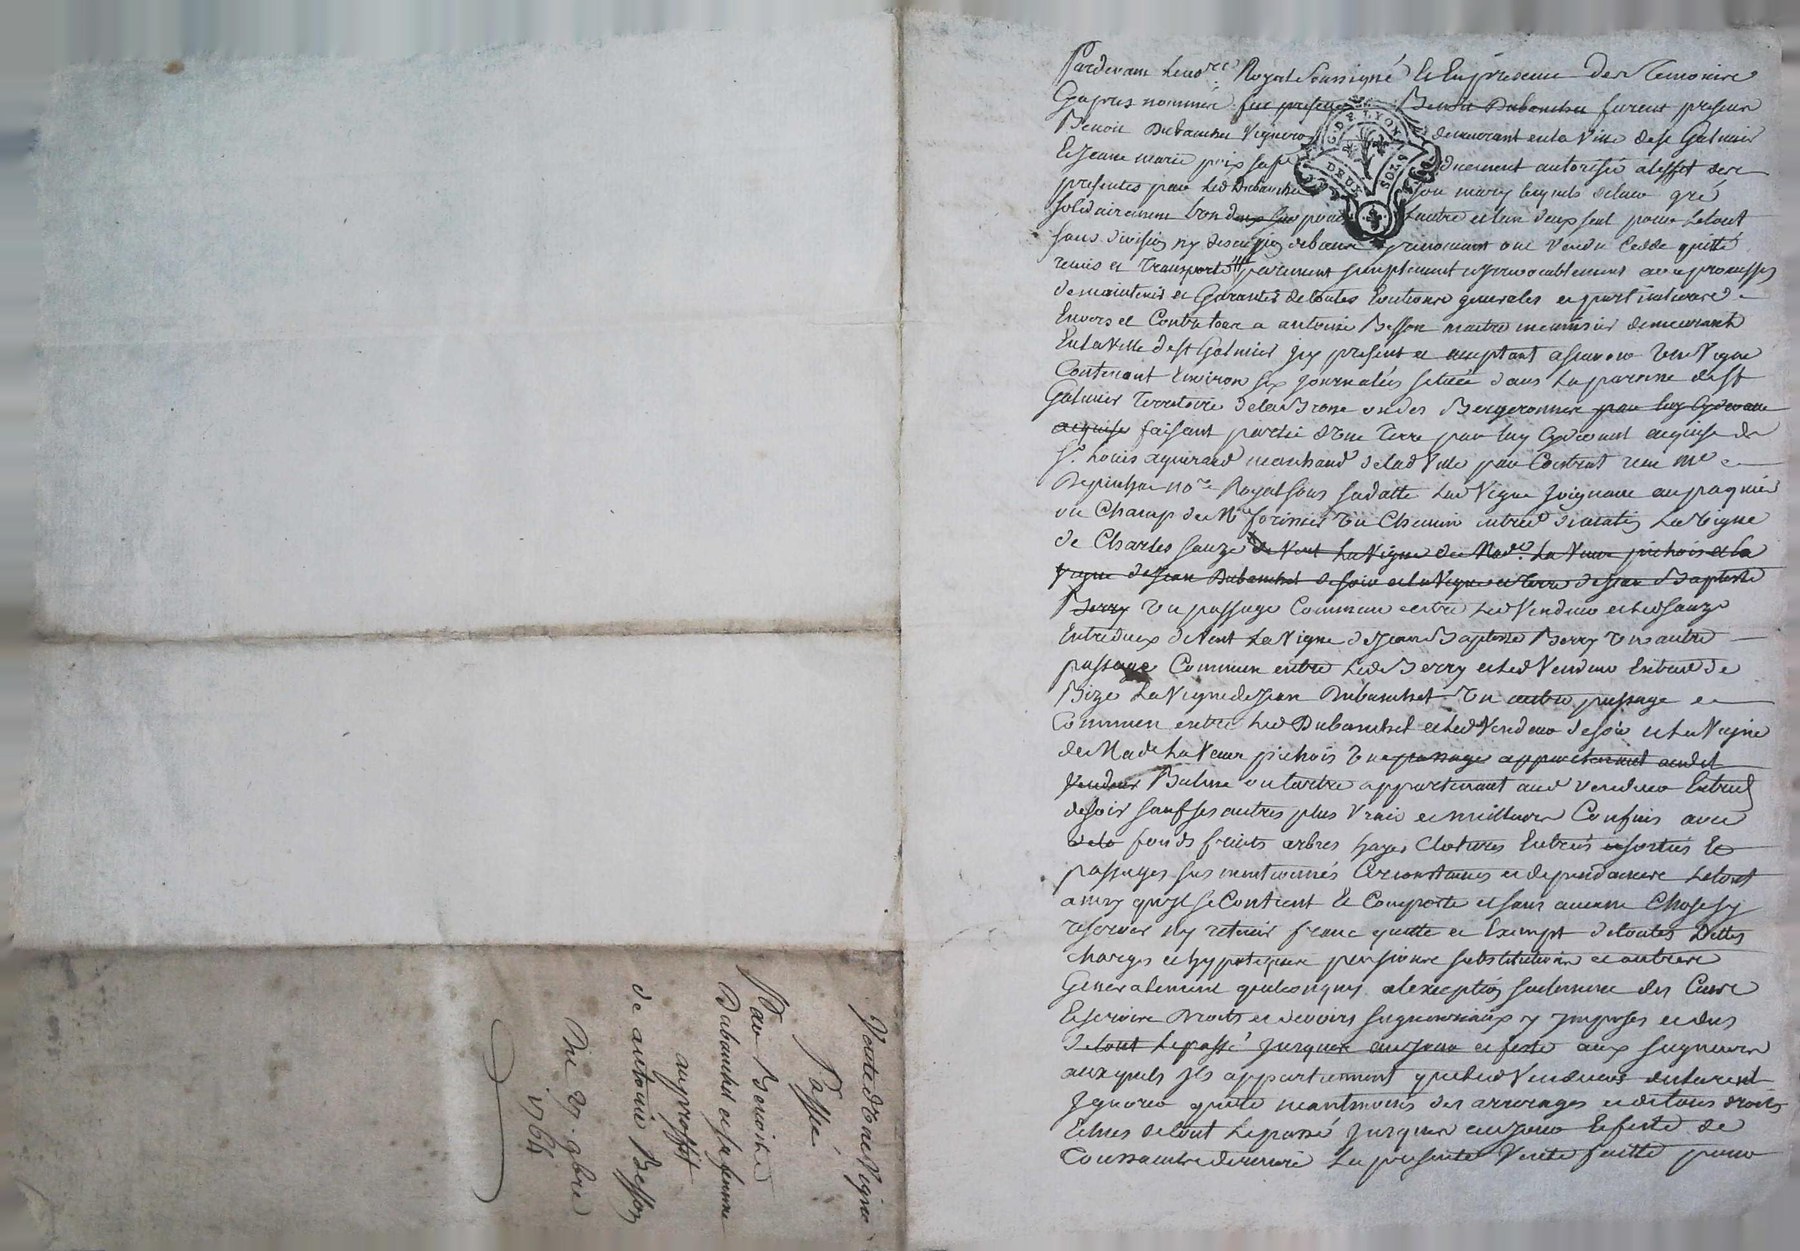 Pardevant le nore Royal Soussigné et En presence des Temoins
Cy apres nommés fut present Benoit Dubanchet furent presens
Benoit Dubanchet Vigneron demeurant en la Ville de St Galmier
Et Jeanne marie sa fe duement autorisée a leffet des
presentes par led Dubanchet son mary lesquels de leur gré
solidairement lun deux pour lautre et lun deux seul pour le tout
sans division ny discussion y renonçant ont Vendu Cedde quitté
remis et Transporté purement simplement et irrevocablement avec promesse
de maintenir et Garantir de toutes Evictions generales et particulieres
Envers et Contre tous a antoine Besson maitre menuisier demeurant
En la Ville de St Galmier Icy present et acceptant assavoir Une Vigne
Contenant Environ six Journalées située dans la paroisse de St
Galmier Territoire de la ou des Bergeronnes par luy Cydevant
acquise faisant partie dune Terre par luy Cydevant acquise de
Sr. Louis marchand de lad Ville par Contrat reçu Me
nore Royal sous sa datte lad Vigne Joignant
ou Champ de Mr Un Chemin entredeux de matin La Vigne
de Charles Sauze de Vent La Vigne de Made. La Veuve pichois et la
Vigne de Jean Dubanchet de soir et la Vigne et terre de Jean Baptiste
Berry Un passage Commun entre Led Vendeur et led Sauze
Entredeux de Vent La Vigne de Jean Baptiste Berry Un autre
passage Commun entre Led Berry et led Vendeur Entred de
Bize La Vigne de Jean Dubanchet Un autre passage
Commun entre Led Dubanchet et led Vendeur de soir et La Vigne
de Made La Veuve pichois Un passage appartenant audit
Vendeur Balme ou tertre appartenant aud Vendeur Entred
de soir sauf ses autres plus Vrais et meilleurs Confins avec
fonds fruits arbres hayes Clotures Entrées et sorties Et
passages sus mentionnés Circonstances et dependances Le tout
ainsy quil se Contient Et Comporte et sans aucune Chose sy
reserver ny retenir franc quitte et Exempt de toutes Dettes
charges et hypoteques pensions substitutions et autres
Generalement quelconques a lexception seulement des Cens
Et servis Droits et devoirs seigneuriaux y Imposés et dus
de tout Le passé Jusques au Jour et feste aux seigneurs
auxquels Ils appartiennent que led Vendeurs
Ignorer quitte neantmoins des arrerages et de tous droits
Echus de tout Le passé Jusques au Jour Et feste de
Toussaint derniere La presente Vente faitte pour
G. DE LYON
DEUX SOLS
Vente d'Une Vigne
Passé
Par Benoit
Dubanchet et sa femme
au proffit
de antoine Besson
Du 27. 9bre
1764